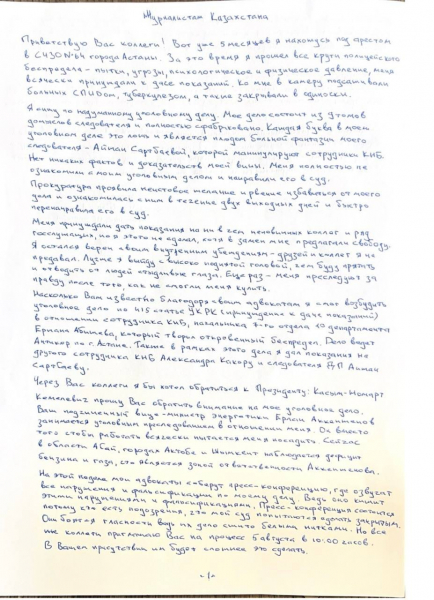 Журналистам Казахстана
Приветствую Вас коллеги! Вот уже 5 месяцев я нахожусь под арестом
в СИЗО №64 города Астаны. За это время я прошел все круги полицейского
беспредела - пытки, угрозы, психологическое и физическое давление, меня
всячески принуждали к даче показаний. Ко мне в камеру подсаживали
больных СПИДом, туберкулезом, а также закрывали в одиночки.
Я сижу по надуманному уголовному делу. Мое дело состоит из 9 томов
домыслов следователя и полностью сфабриковано. Каждая буква в моем
уголовном деле это ложь и является плодом больной фантазии моего
следователя - Айман Сартбаевой, которой манипулируют сотрудники КНБ.
Нет никаких фактов и доказательств моей вины. Меня полностью не
ознакомили с моим уголовным делом и направили его в суд.
Прокуратура проявила неистовое желание и рвение избавиться от моего
дела и ознакомилась с ним в течение двух выходных дней и быстро
перенаправила его в суд.
Меня принуждали дать показания на ни в чем неповинных коллег и ряд
госслужащих, но я этого не сделал, хотя в замен мне предлагали свободу.
Я остался верен своим внутренним убеждениям - друзей и коллег я не
предавал. Лучше я выйду с высоко поднятой головой, чем буду прятать
и отводить от людей стыдливые глаза. Еще раз - меня преследуют за
правду после того, как не смогли меня купить.
Насколько Вам известно благодаря своим адвокатам я смог возбудить
уголовное дело по 415 статье УК РК (принуждение к даче показаний)
в отношении сотрудника КНБ, начальника 7-го отдела 10 департамента
Ермана Абишева, который творил откровенный беспредел. Дело ведет
Антикор по г. Астане. Также в рамках этого дела я дал показания на
другого сотрудника КНБ Александра Какорду и следователя ДП Айман
Сартбаеву.
Через Вас коллеги я бы хотел обратиться к Президенту: Касым-Жомарт
Кемелевич прошу Вас обратить внимание на мое уголовное дело.
Ваш подчиненный вице-министр энергетики Ерлан Аккенженов
занимается уголовным преследованием в отношении меня. Он вместо
того чтобы работать всячески пытается меня посадить. Сейчас
в области Абай, городах Актобе и Шымкент наблюдается дефицит
бензина и газа, что является зоной ответственности Аккенженова.
На этой неделе мои адвокаты соберут пресс-конференцию, где озвучат
все нарушения и фальсификации по моему делу. Ведь оно кишит
этими нарушениями и фальсификациями. Пресс-конференция состоится
потому что есть подозрения, что мой суд попытаются сделать закрытым.
Они боятся гласности ведь их дело сшито белыми нитками. Но все
же коллеги приглашаю Вас на процесс 5 августа в 10:00 часов.
В Вашем присутствии им будет сложнее это сделать.
-1-